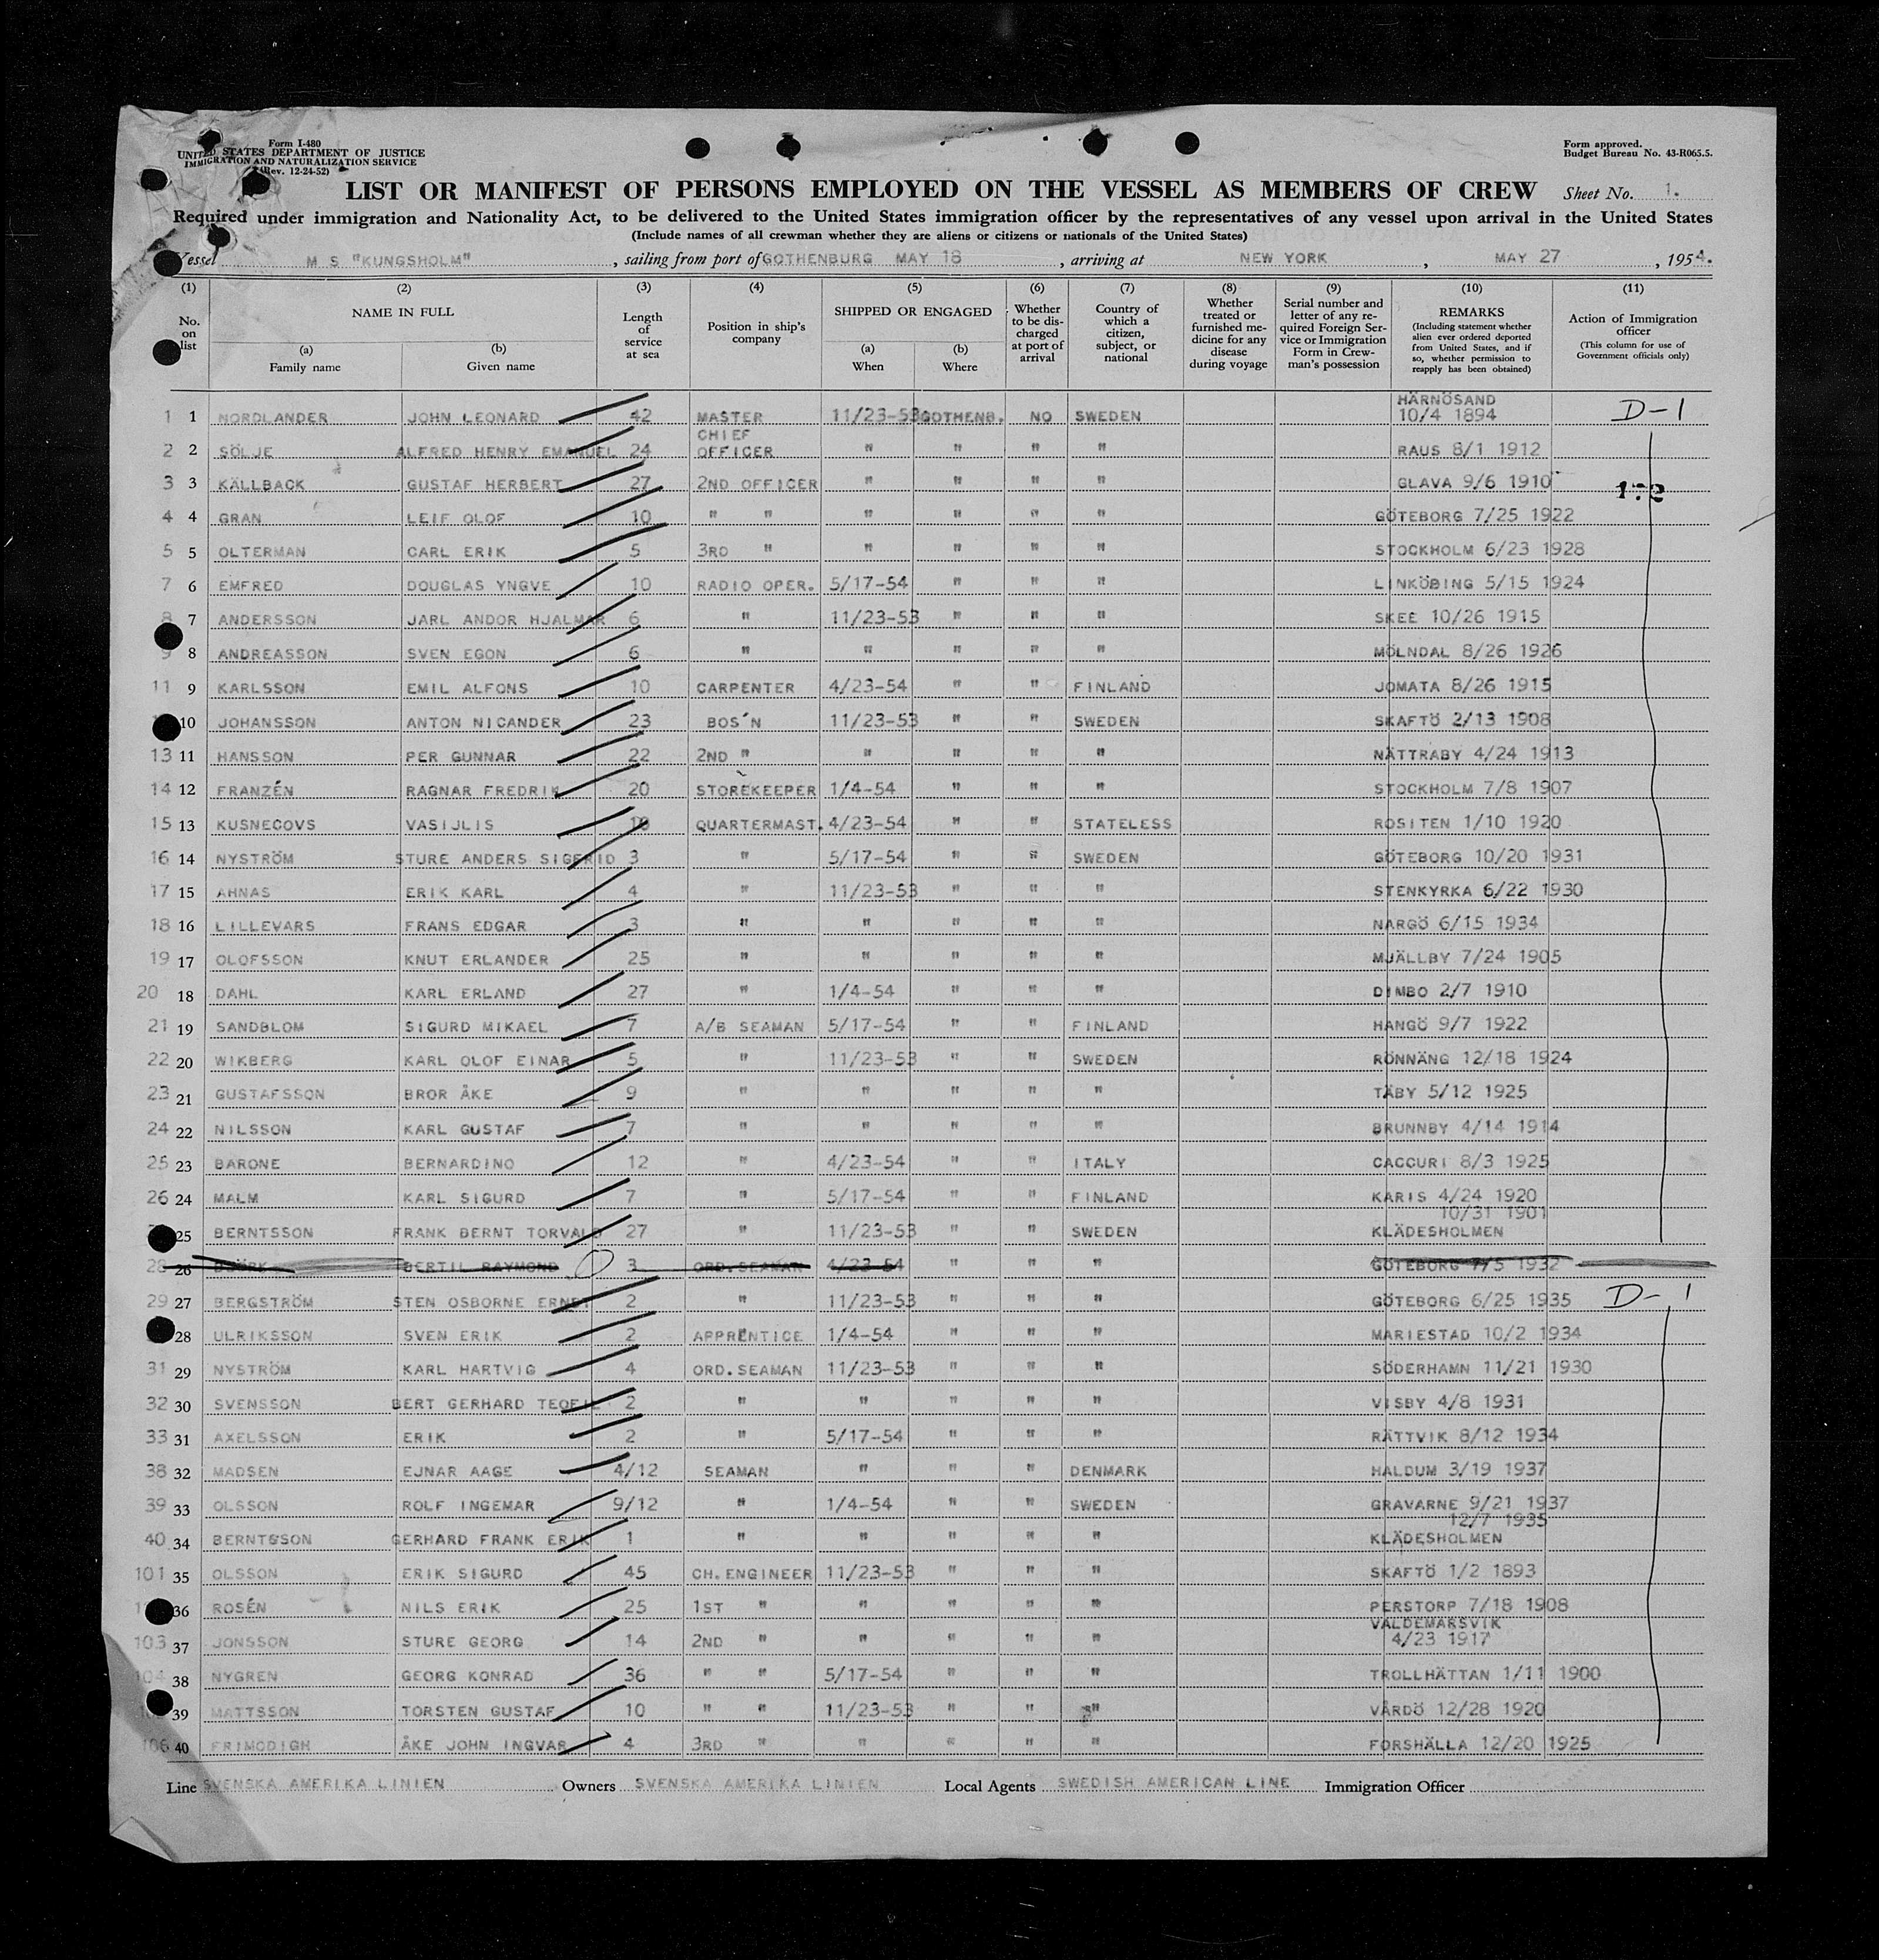 Form I-480
UNITED STATES DEPARTMENT OF JUSTICE
IMMIGRATION AND NATURALIZATION SERVICE
(Rev. 12-24-52)
Form approved.
Budget Bureau No. 43-R065.5.
LIST OR MANIFEST OF PERSONS EMPLOYED ON THE VESSEL AS MEMBERS OF CREW Sheet No. 1.
Required under immigration and Nationality Act, to be delivered to the United States immigration officer by the representatives of any vessel upon arrival in the United States
(Include names of all crewman whether they are aliens or citizens or nationals of the United States)
Vessel M S "KUNGSHOLM", sailing from port of GOTHENBURG MAY 18, arriving at NEW YORK, MAY 27, 1954.
(1) (2) (3) (4) (5) (6) (7) (8) (9) (10) (11)
No. on list
NAME IN FULL
(a) Family name
(b) Given name
Length of service at sea
Position in ship's company
SHIPPED OR ENGAGED
(a) When
(b) Where
Whether to be discharged at port of arrival
Country of which a citizen, subject, or national
Whether treated or furnished medicine for any disease during voyage
Serial number and letter of any required Foreign Service or Immigration Form in Crewman's possession
REMARKS
(Including statement whether alien ever ordered deported from United States, and if so, whether permission to reapply has been obtained)
Action of Immigration officer
(This column for use of Government officials only)
1 1 NORDLANDER JOHN LEONARD 42 MASTER 11/23-53 GOTHENB. NO SWEDEN HÄRNÖSAND 10/4 1894 D-1
2 2 SÖLJE ALFRED HENRY EMANUEL 24 CHIEF OFFICER " " " " RAUS 8/1 1912
3 3 KÄLLBACK GUSTAF HERBERT 27 2ND OFFICER " " " " GLAVA 9/6 1910
4 4 GRAN LEIF OLOF 10 " " " " " " GÖTEBORG 7/25 1922
5 5 OLTERMAN CARL ERIK 5 3RD " " " " " STOCKHOLM 6/23 1928
7 6 EMFRED DOUGLAS YNGVE 10 RADIO OPER. 5/17-54 " " " LINKÖBING 5/15 1924
8 7 ANDERSSON JARL ANDOR HJALMAR 6 " 11/23-53 " " " SKEE 10/26 1915
9 8 ANDREASSON SVEN EGON 6 " " " " " MÖLNDAL 8/26 1926
11 9 KARLSSON EMIL ALFONS 10 CARPENTER 4/23-54 " " FINLAND JOMATA 8/26 1915
10 JOHANSSON ANTON NICANDER 23 BOS'N 11/23-53 " " SWEDEN SKAFTÖ 2/13 1908
13 11 HANSSON PER GUNNAR 22 2ND " " " " " NÄTTRABY 4/24 1913
14 12 FRANZÉN RAGNAR FREDRIK 20 STOREKEEPER 1/4-54 " " " STOCKHOLM 7/8 1907
15 13 KUSNECOVS VASIJLIS QUARTERMAST. 4/23-54 " " STATELESS ROSITEN 1/10 1920
16 14 NYSTRÖM STURE ANDERS SIGFRID 3 " 5/17-54 " " SWEDEN GÖTEBORG 10/20 1931
17 15 AHNAS ERIK KARL 4 " 11/23-53 " " " STENKYRKA 6/22 1930
18 16 LILLEVARS FRANS EDGAR 3 " " " " " NARGÖ 6/15 1934
19 17 OLOFSSON KNUT ERLANDER 25 " " " " " MJÄLLBY 7/24 1905
20 18 DAHL KARL ERLAND 27 " 1/4-54 " " " DIMBO 2/7 1910
21 19 SANDBLOM SIGURD MIKAEL 7 A/B SEAMAN 5/17-54 " " FINLAND HANGÖ 9/7 1922
22 20 WIKBERG KARL OLOF EINAR 5 " 11/23-53 " " SWEDEN RÖNNÄNG 12/18 1924
23 21 GUSTAFSSON BROR ÅKE 9 " " " " " TÄBY 5/12 1925
24 22 NILSSON KARL GUSTAF 7 " " " " " BRUNNBY 4/14 1914
25 23 BARONE BERNARDINO 12 " 4/23-54 " " ITALY CACCURI 8/3 1925
26 24 MALM KARL SIGURD 7 " 5/17-54 " " FINLAND KARIS 4/24 1920
25 BERNTSSON FRANK BERNT TORVALD 27 " 11/23-53 " " SWEDEN 10/31 1901 KLÄDESHOLMEN
28 26 BJÖRK BERTIL RAYMOND 3 ORD. SEAMAN 4/23-54 " " " GÖTEBORG 7/5 1932
29 27 BERGSTRÖM STEN OSBORNE ERNST 2 " 11/23-53 " " " GÖTEBORG 6/25 1935 D-1
28 ULRIKSSON SVEN ERIK 2 APPRENTICE 1/4-54 " " " MARIESTAD 10/2 1934
31 29 NYSTRÖM KARL HARTVIG 4 ORD. SEAMAN 11/23-53 " " " SÖDERHAMN 11/21 1930
32 30 SVENSSON BERT GERHARD TEOFIL 2 " " " " " VISBY 4/8 1931
33 31 AXELSSON ERIK 2 " 5/17-54 " " " RÄTTVIK 8/12 1934
38 32 MADSEN EJNAR AAGE 4/12 SEAMAN " " " DENMARK HALDUM 3/19 1937
39 33 OLSSON ROLF INGEMAR 9/12 " 1/4-54 " " SWEDEN GRAVARNE 9/21 1937
40 34 BERNTSSON GERHARD FRANK ERIK 1 " " " " " 12/7 1935 KLÄDESHOLMEN
101 35 OLSSON ERIK SIGURD 45 CH. ENGINEER 11/23-53 " " " SKAFTÖ 1/2 1893
36 ROSÉN NILS ERIK 25 1ST " " " " " PERSTORP 7/18 1908
103 37 JONSSON STURE GEORG 14 2ND " " " " " VALDEMARSVIK 4/23 1917
104 38 NYGREN GEORG KONRAD 36 " " 5/17-54 " " " TROLLHÄTTAN 1/11 1900
39 MATTSSON TORSTEN GUSTAF 10 " " 11/23-53 " " " VÅRDÖ 12/28 1920
106 40 FRIMODIGH ÅKE JOHN INGVAR 4 3RD " " " " " FORSHÄLLA 12/20 1925
Line SVENSKA AMERIKA LINIEN Owners SVENSKA AMERIKA LINIEN Local Agents SWEDISH AMERICAN LINE Immigration Officer